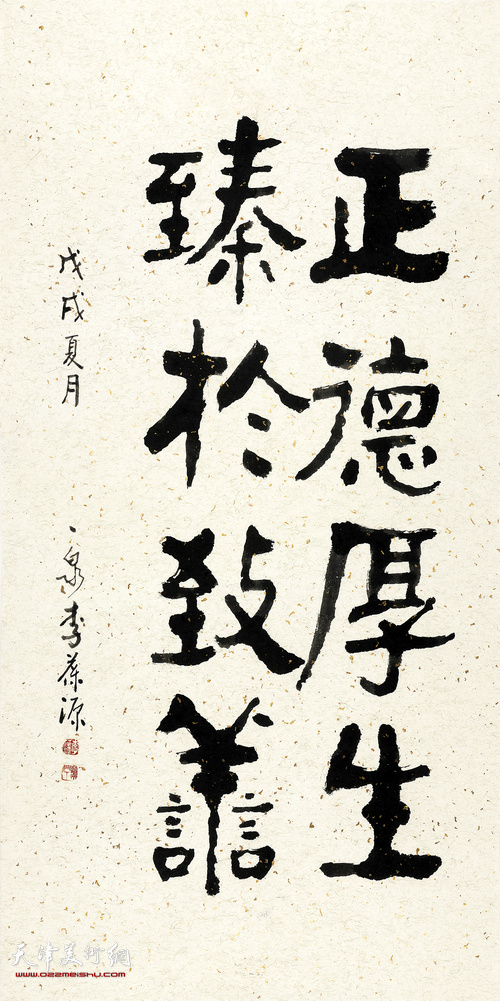 正德厚生
臻於致譱
戊戌夏月
一泉李葆源
天津美术网
www.022meishu.com